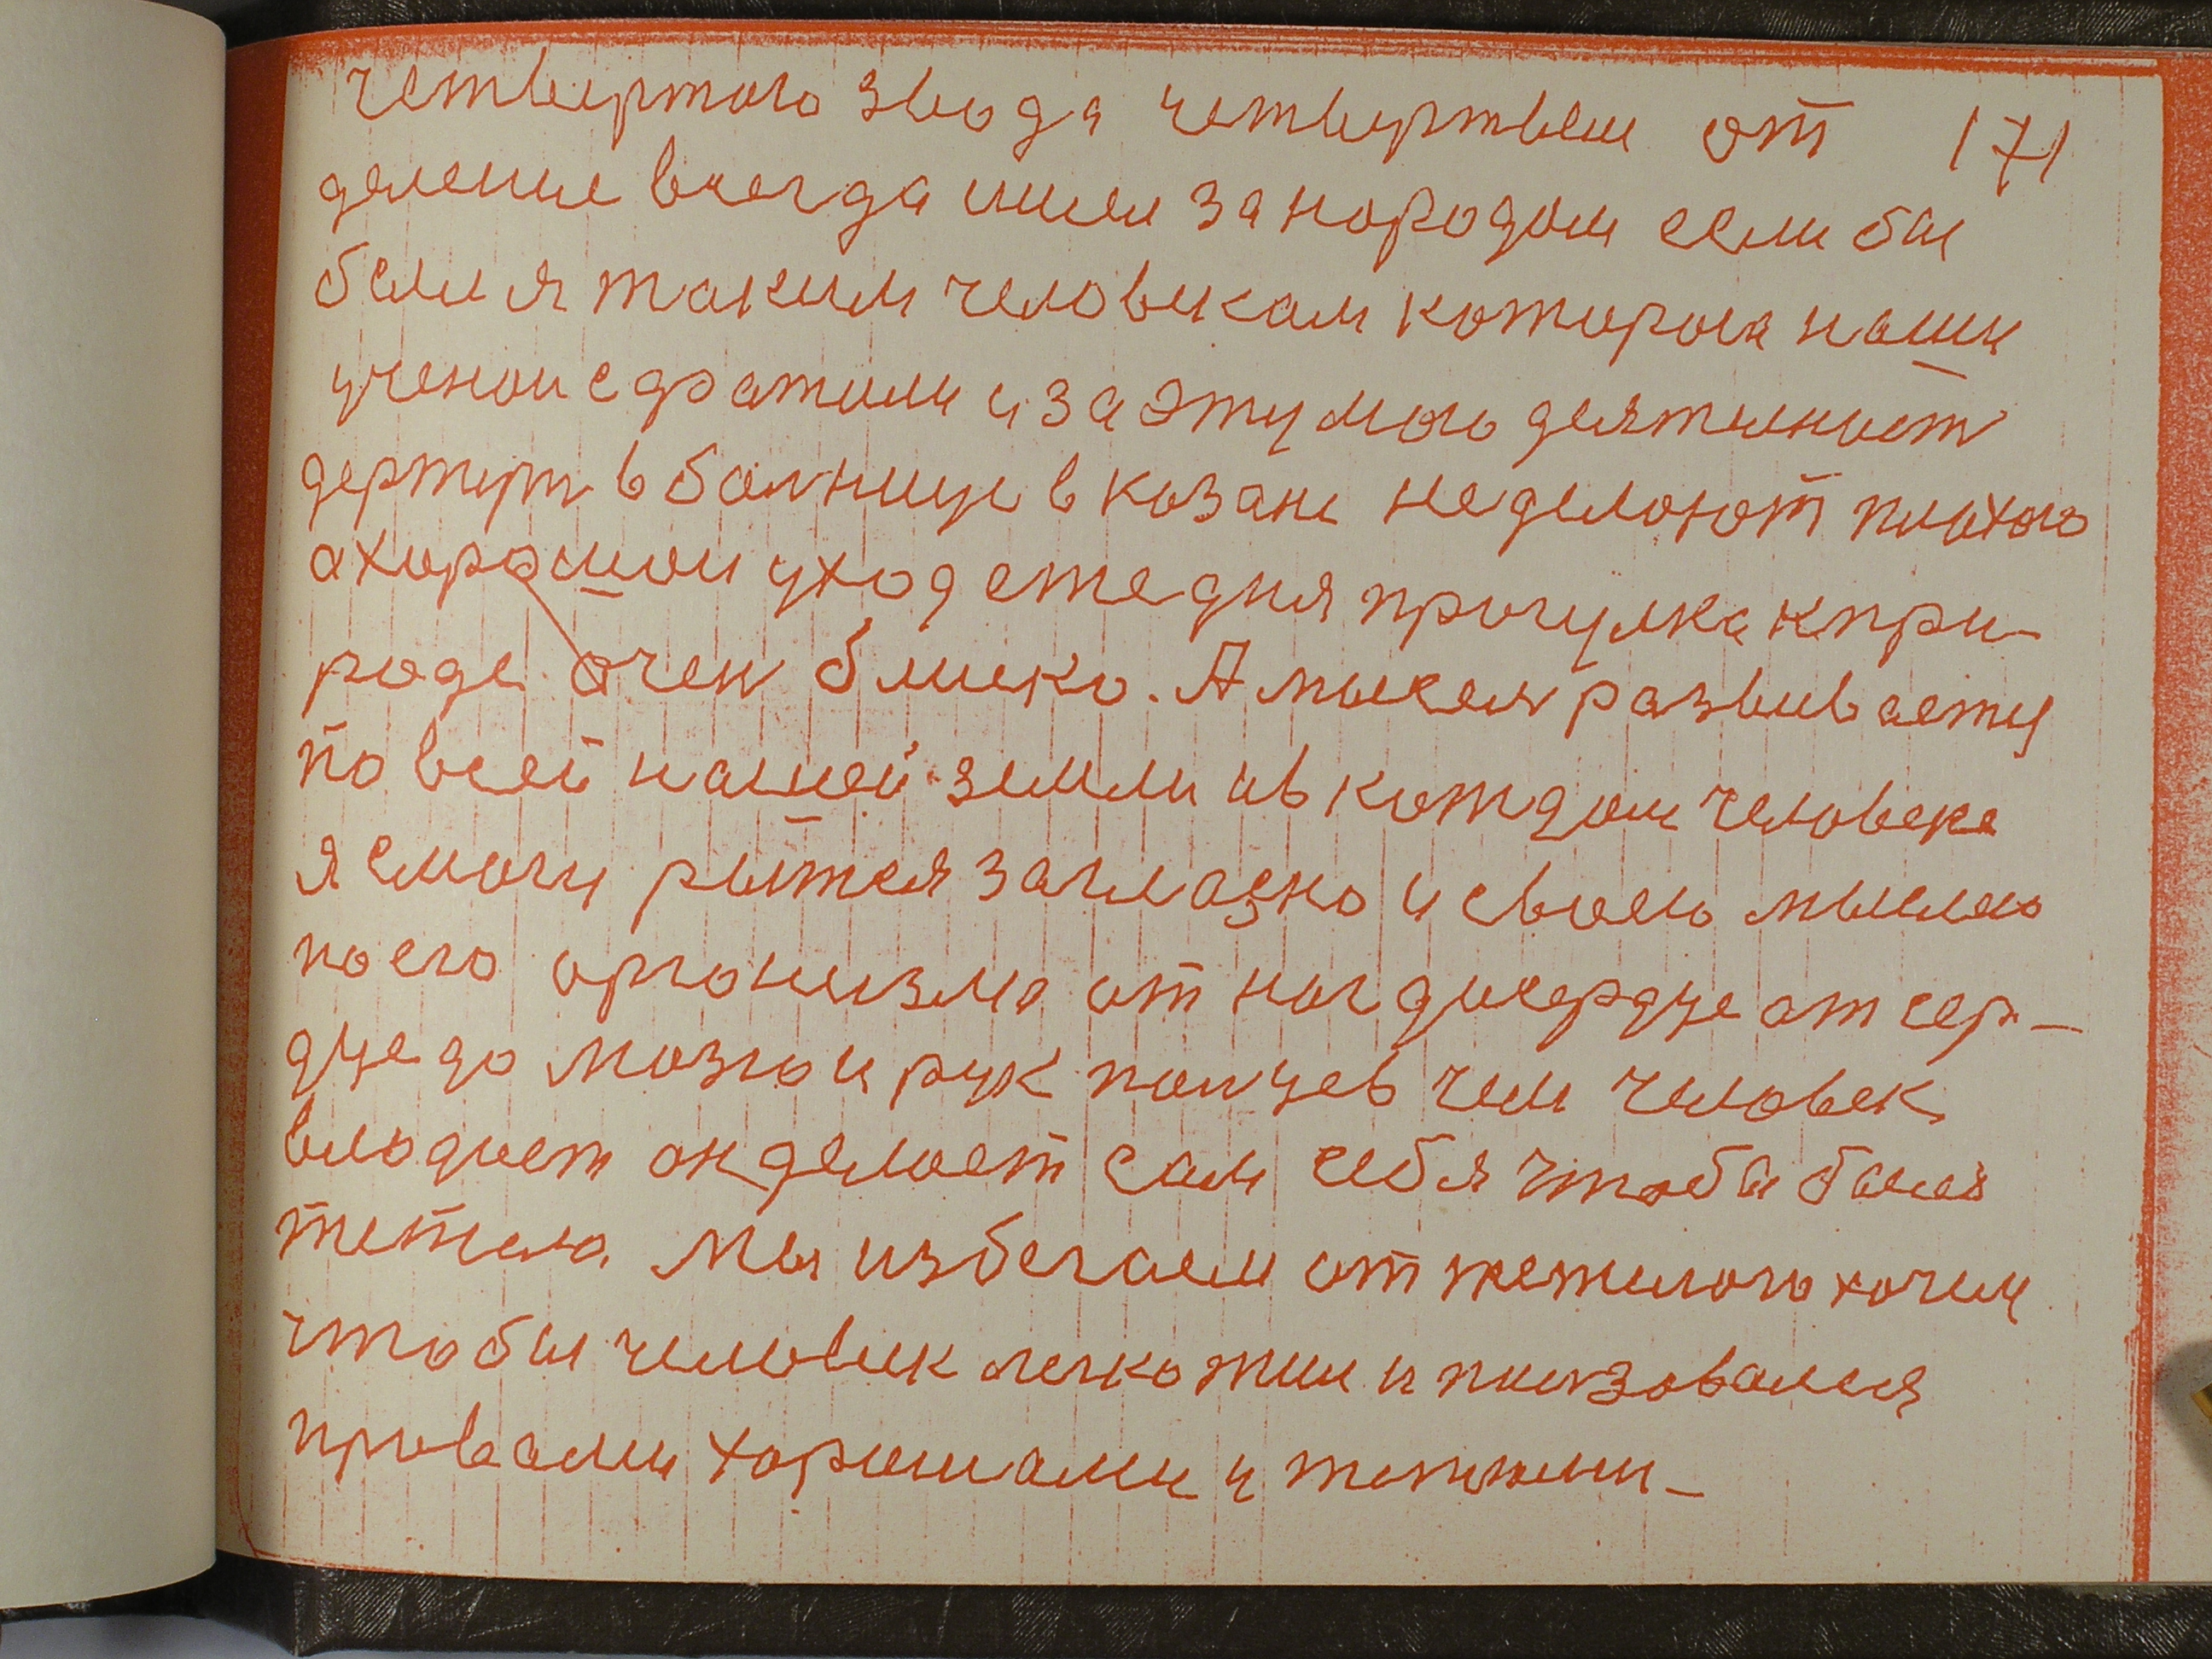 четвертого звода четвертым от 171
деление всегда имел за народом если бы
был и я таким человикам которых наши
ученои сфратили и за эту мою деятелност
держут в болнице в казане не делоют плохого
а хорошои уход стедня прогулка к при-
роде очен блиско. А мысел развивает
по всей нашей земли и в котдом человеке
я смогу рытся заглазно и своею мыслю
по его организма от ног до сердце от сер-
дце до мозго и рук полцев чем человек
влодиет он делоет сам себя чтобы было
тетело мы избегаем от тетилого хочим
чтобы человик легко жил и ползовался
провоми хорошами и